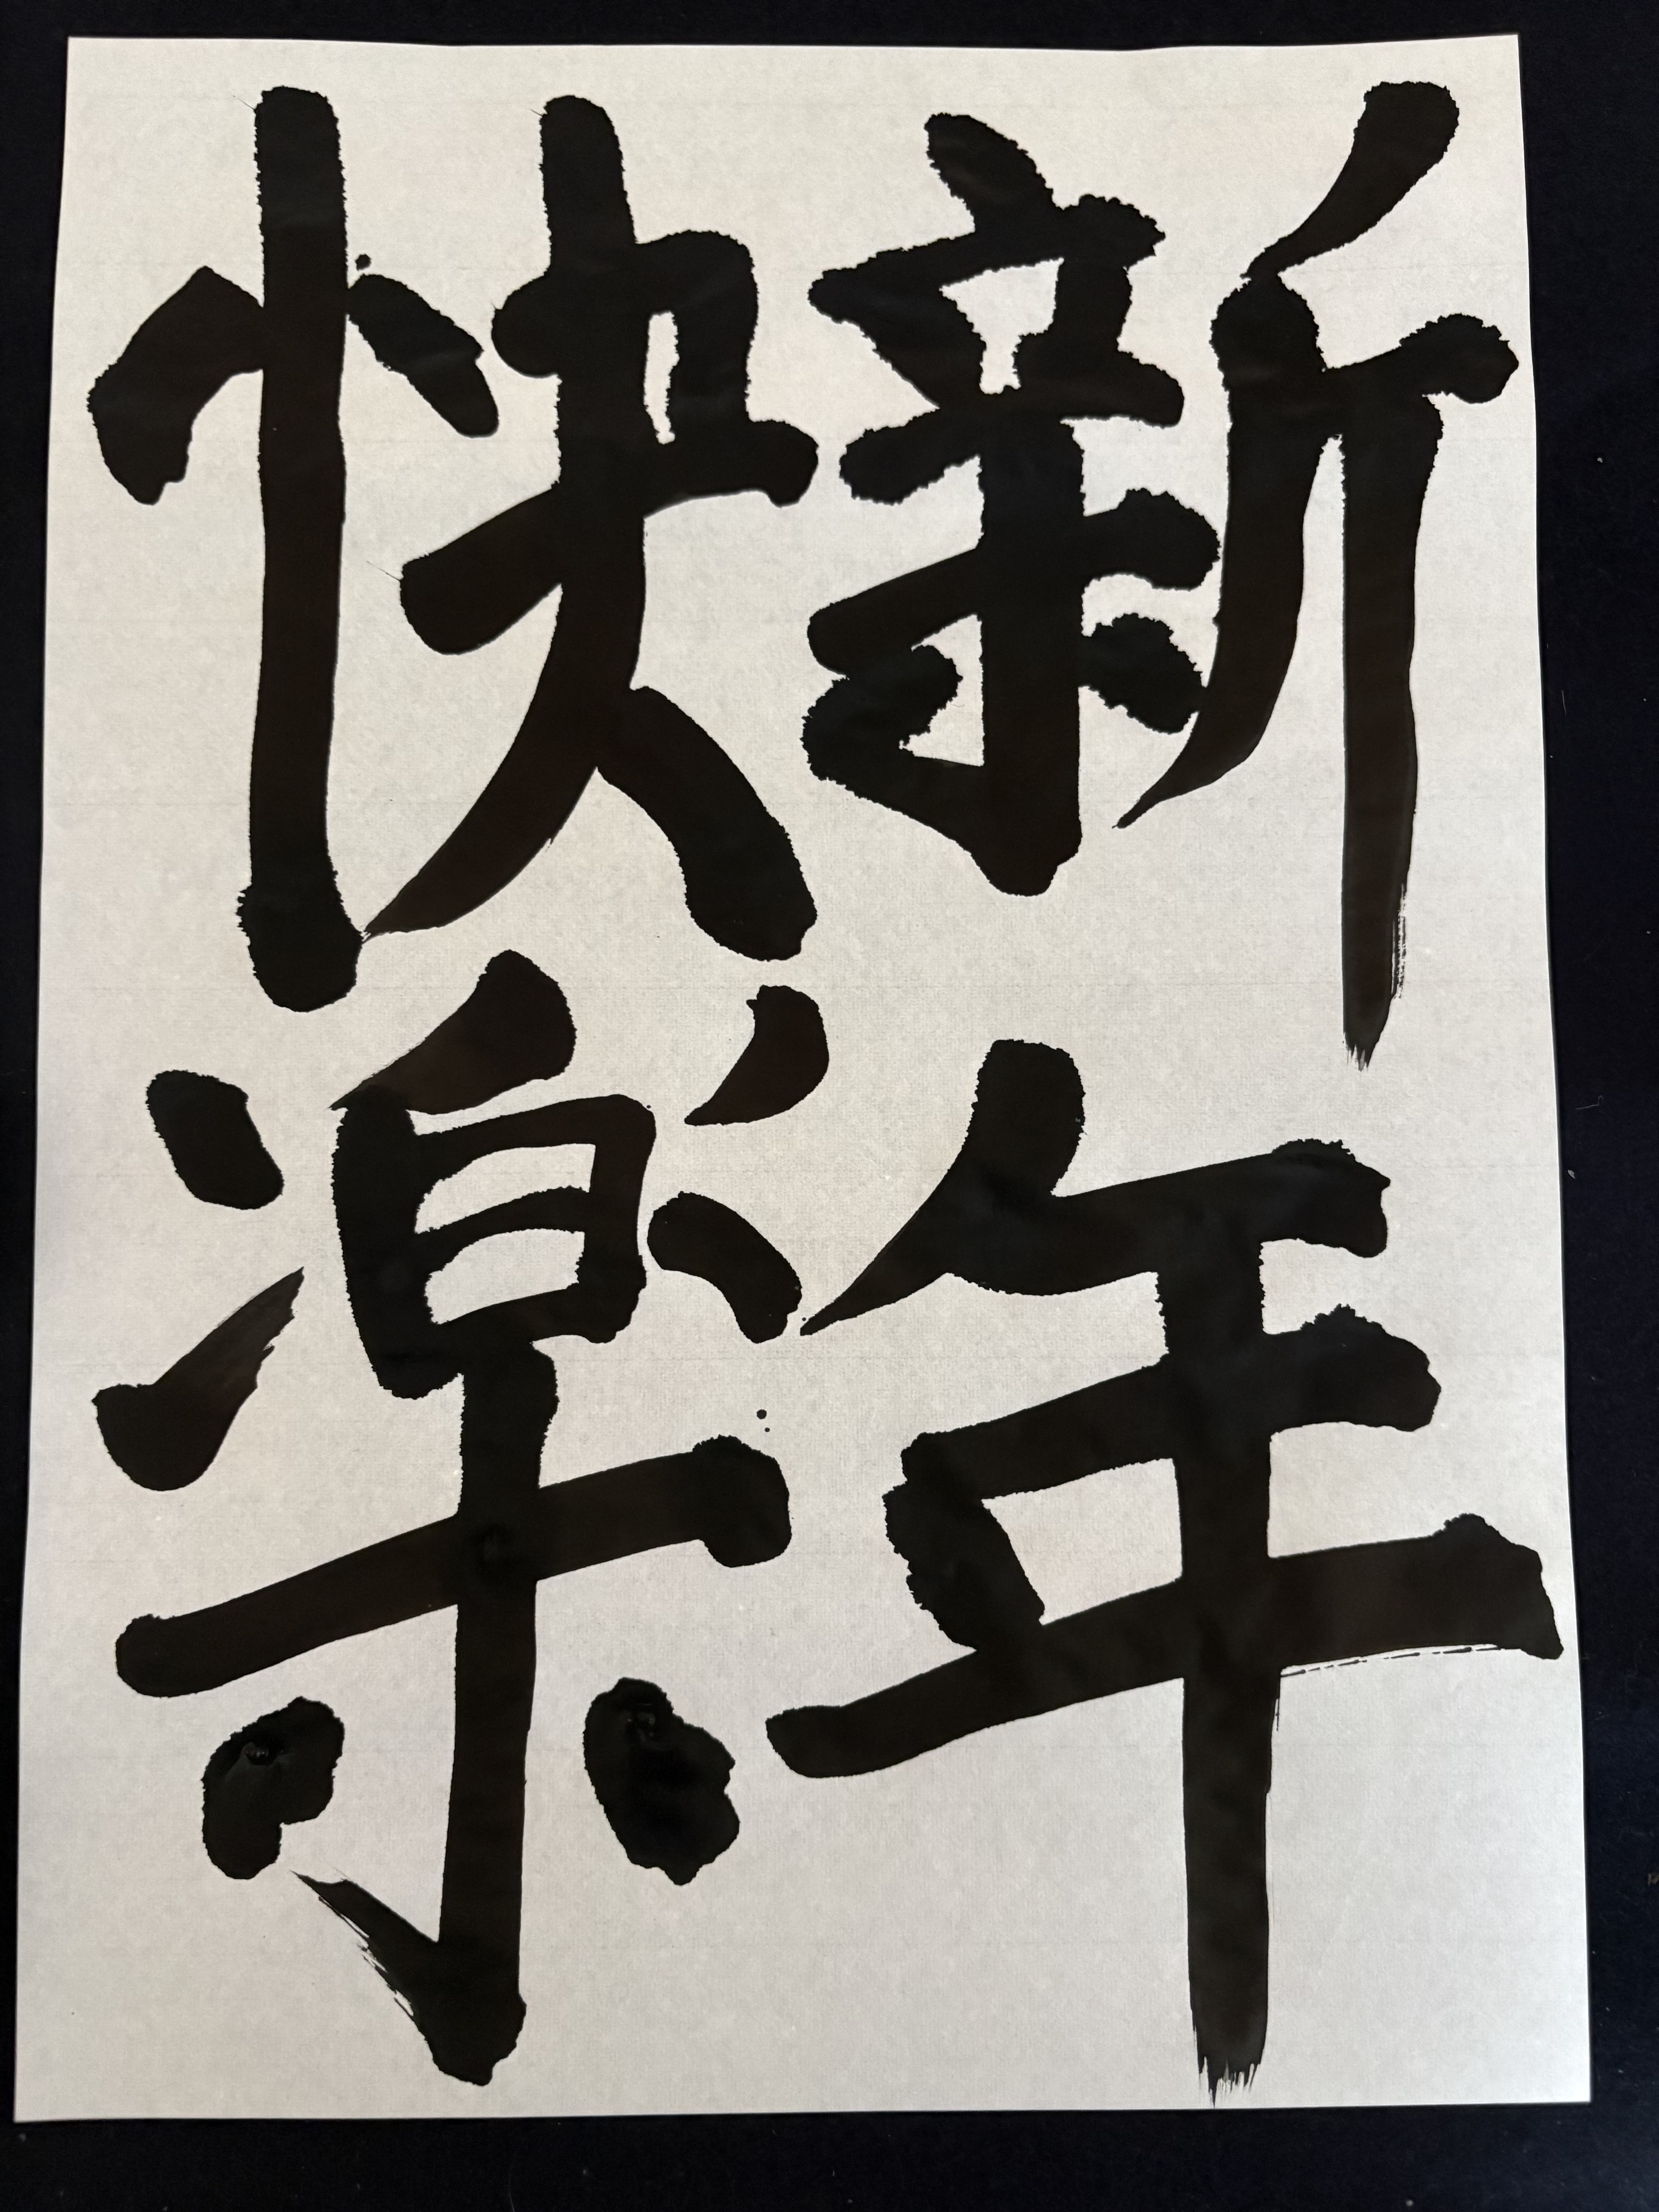 新年
快楽